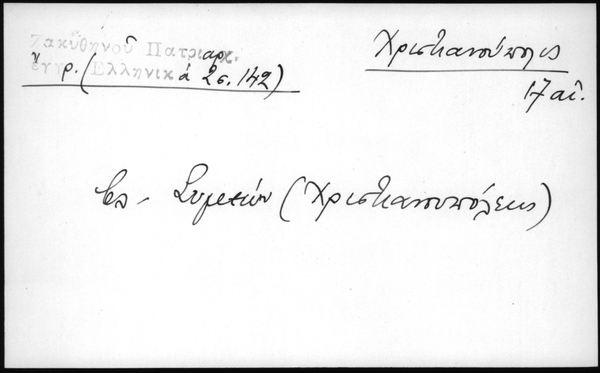 Ζακυθηνοῦ Πατριαρχ.
ἔγγρ. (Ἑλληνικά 2 σ. 142)
Χριστιανούπολις
17 αἰ.
Συμεών (Χριστιανουπόλεως)